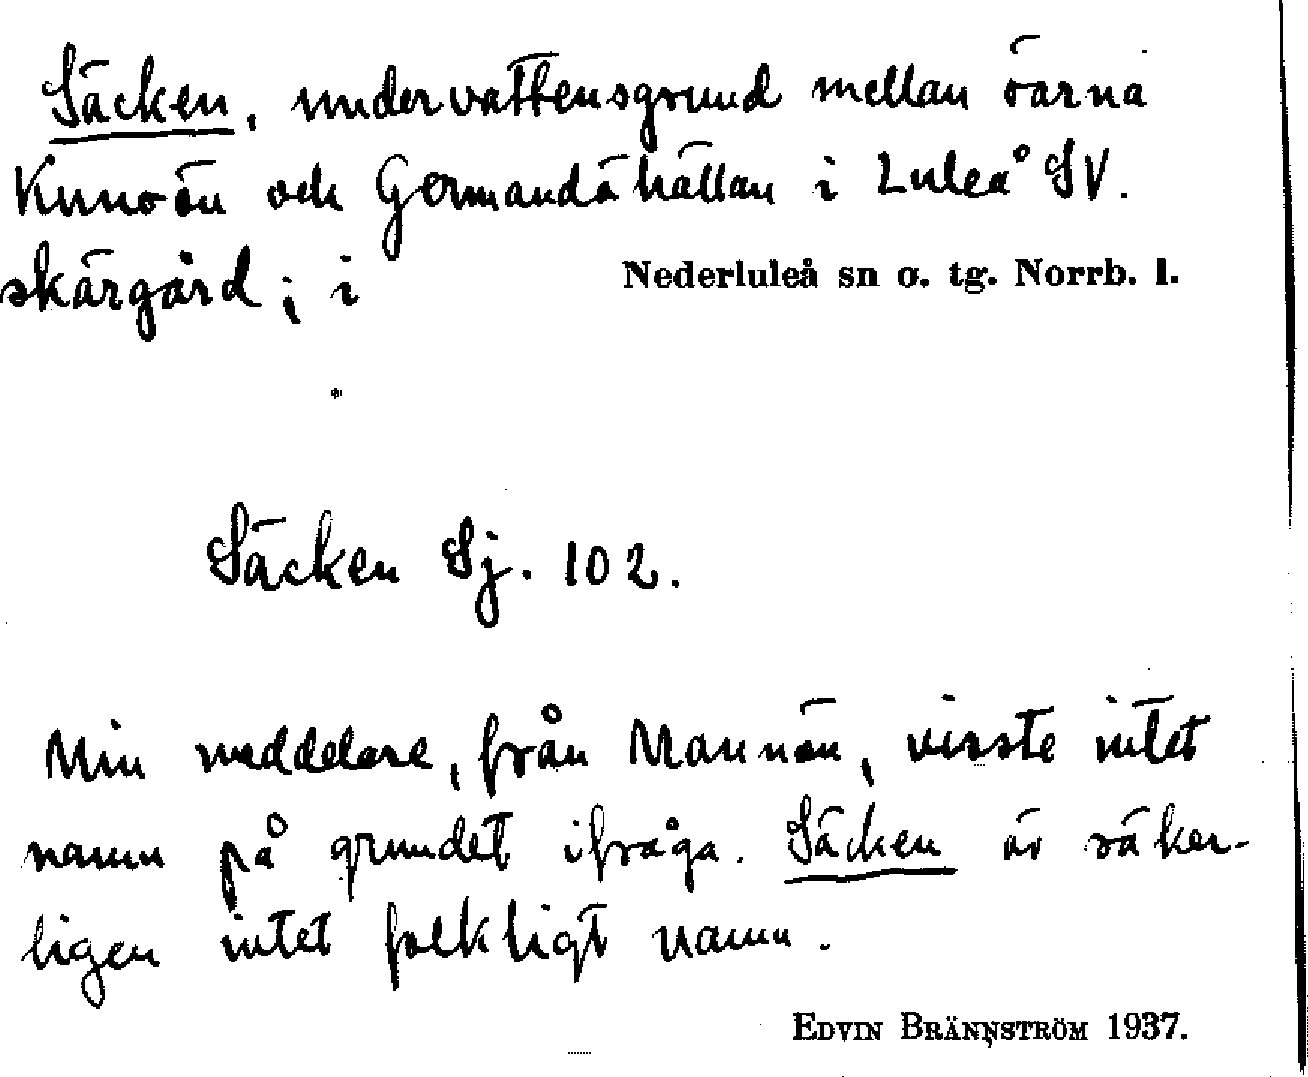 Säcken, undervattensgrund mellan öarna
Kunoön och Germandöhällan i Luleå SV.
skärgård; i Nederluleå sn o. tg. Norrb. l.
Säcken Sj. 102.
Min meddelare, från Mannön, visste intet
namn på grundet ifråga. Säcken är säker-
ligen intet folkligt namn.
EDVIN BRÄNNSTRÖM 1937.